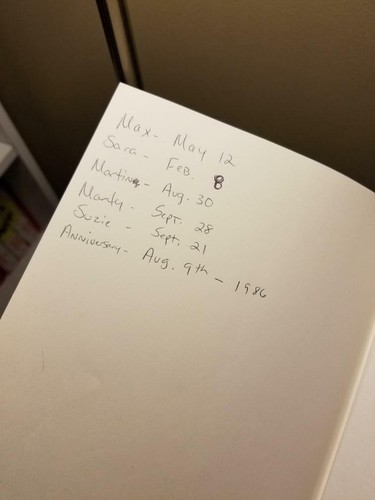 Max - May 12
Sara - Feb. 8
Martin - Aug. 30
Mandy - Sept. 28
Suzie - Sept. 21
Anniversary - Aug. 9th - 1986